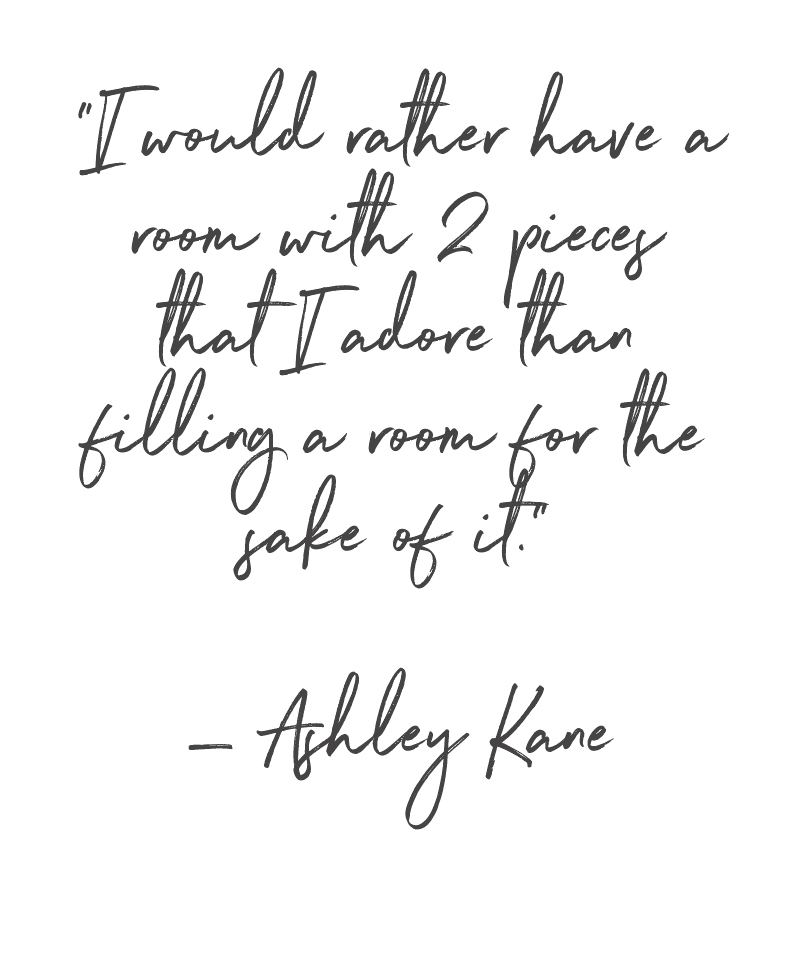 "I would rather have a
room with 2 pieces
that I adore than
filling a room for the
sake of it."
– Ashley Kane